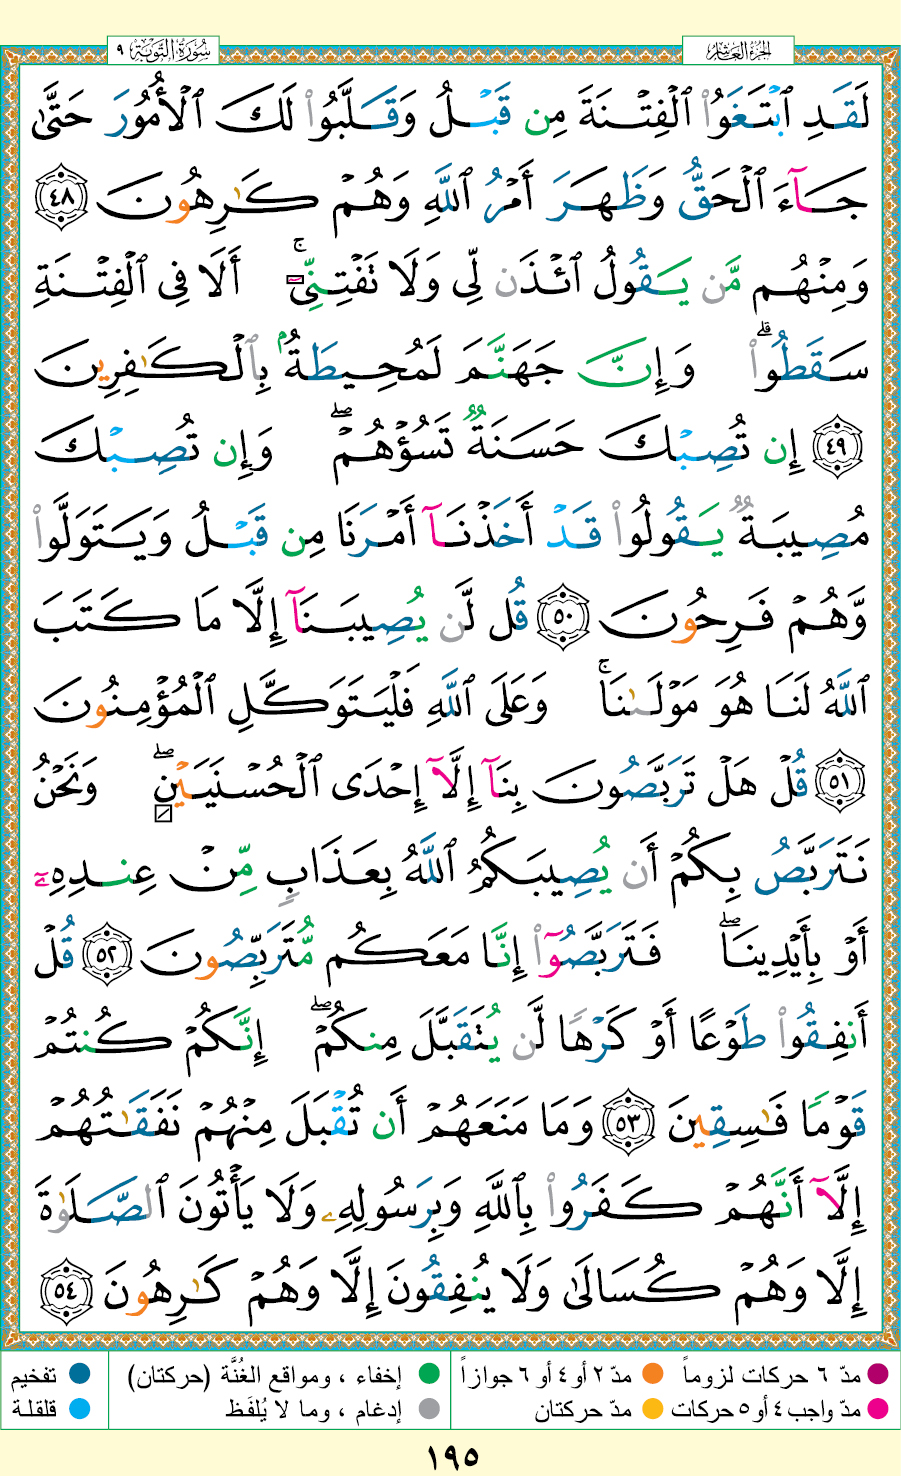 الجزء العاشر
سورة التوبة ٩
لَقَدِ ٱبۡتَغَوُاْ ٱلۡفِتۡنَةَ مِن قَبۡلُ وَقَلَّبُواْ لَكَ ٱلۡأُمُورَ حَتَّىٰ
جَآءَ ٱلۡحَقُّ وَظَهَرَ أَمۡرُ ٱللَّهِ وَهُمۡ كَٰرِهُونَ ٤٨
وَمِنۡهُم مَّن يَقُولُ ٱئۡذَن لِّي وَلَا تَفۡتِنِّيٓۚ أَلَا فِي ٱلۡفِتۡنَةِ
سَقَطُواْۗ وَإِنَّ جَهَنَّمَ لَمُحِيطَةُۢ بِٱلۡكَٰفِرِينَ
٤٩ إِن تُصِبۡكَ حَسَنَةٞ تَسُؤۡهُمۡۖ وَإِن تُصِبۡكَ
مُصِيبَةٞ يَقُولُواْ قَدۡ أَخَذۡنَآ أَمۡرَنَا مِن قَبۡلُ وَيَتَوَلَّواْ
وَّهُمۡ فَرِحُونَ ٥٠ قُل لَّن يُصِيبَنَآ إِلَّا مَا كَتَبَ
ٱللَّهُ لَنَا هُوَ مَوۡلَىٰنَاۚ وَعَلَى ٱللَّهِ فَلۡيَتَوَكَّلِ ٱلۡمُؤۡمِنُونَ
٥١ قُلۡ هَلۡ تَرَبَّصُونَ بِنَآ إِلَّآ إِحۡدَى ٱلۡحُسۡنَيَيۡنِۖ وَنَحۡنُ
نَتَرَبَّصُ بِكُمۡ أَن يُصِيبَكُمُ ٱللَّهُ بِعَذَابٖ مِّنۡ عِندِهِۦٓ
أَوۡ بِأَيۡدِينَاۖ فَتَرَبَّصُوٓاْ إِنَّا مَعَكُم مُّتَرَبِّصُونَ ٥٢ قُلۡ
أَنفِقُواْ طَوۡعًا أَوۡ كَرۡهٗا لَّن يُتَقَبَّلَ مِنكُمۡۖ إِنَّكُمۡ كُنتُمۡ
قَوۡمٗا فَٰسِقِينَ ٥٣ وَمَا مَنَعَهُمۡ أَن تُقۡبَلَ مِنۡهُمۡ نَفَقَٰتُهُمۡ
إِلَّآ أَنَّهُمۡ كَفَرُواْ بِٱللَّهِ وَبِرَسُولِهِۦ وَلَا يَأۡتُونَ ٱلصَّلَوٰةَ
إِلَّا وَهُمۡ كُسَالَىٰ وَلَا يُنفِقُونَ إِلَّا وَهُمۡ كَٰرِهُونَ ٥٤
مدّ ٦ حركات لزوماً مدّ ٢ أو ٤ أو ٦ جوازاً إخفاء ، ومواقع الغُنَّة (حركتان) تفخيم
مدّ واجب ٤ أو ٥ حركات مدّ حركتان إدغام ، وما لا يُلفَظ قلقلة
١٩٥